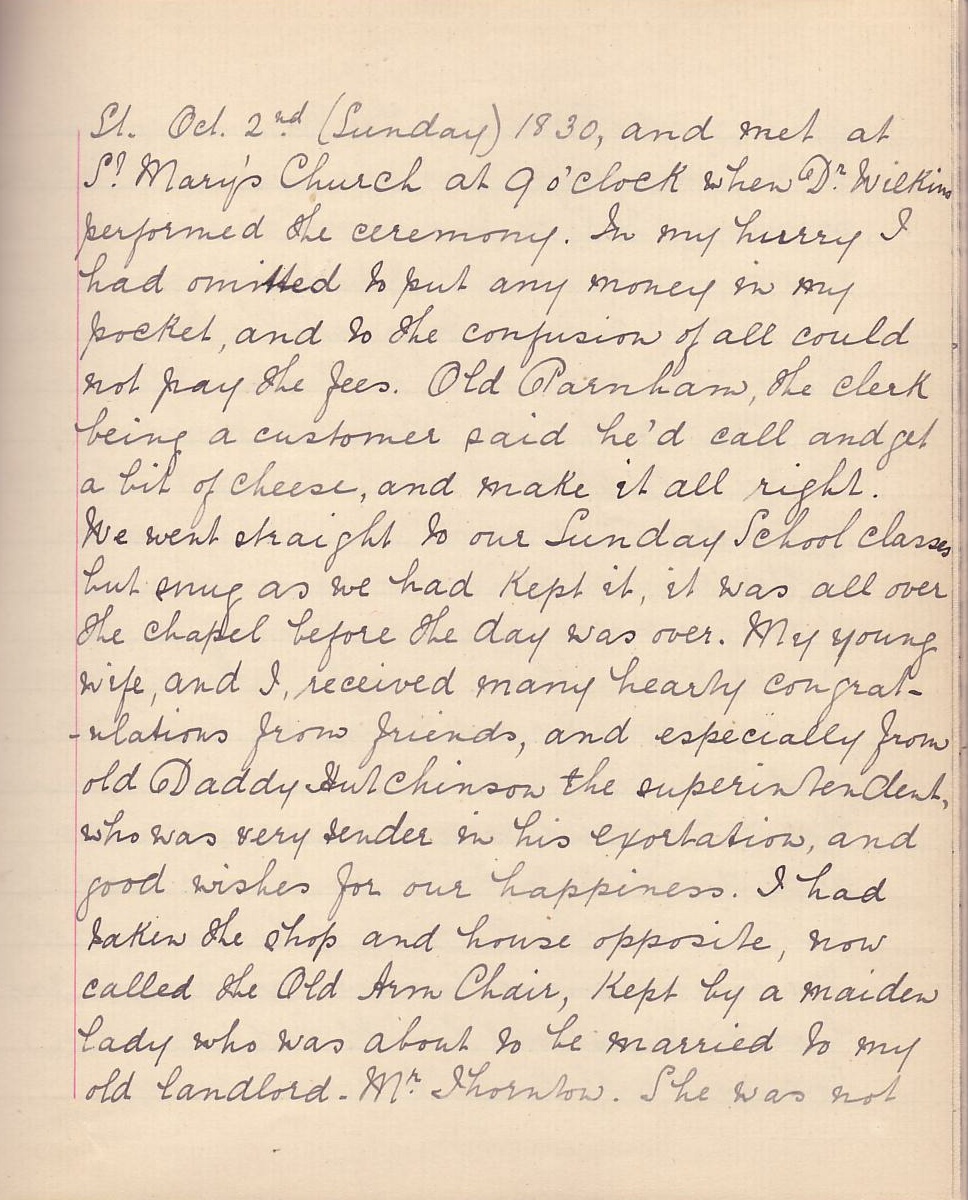 St. Oct. 2nd (Sunday) 1830, and met at
St Mary's Church at 9 o'clock when Dr. Wilkins
performed the ceremony. In my hurry I
had omitted to put any money in my
pocket, and to the confusion of all could
not pay the fees. Old Parnham, the clerk
being a customer said he'd call and get
a bit of cheese, and make it all right.
We went straight to our Sunday School classes
but snug as we had kept it, it was all over
the chapel before the day was over. My young
wife, and I, received many hearty congrat-
-ulations from friends, and especially from
old Daddy Hutchinson the superintendent,
who was very tender in his exortation, and
good wishes for our happiness. I had
taken the shop and house opposite, now
called the Old Arm Chair, kept by a maiden
lady who was about to be married to my
old landlord - Mr. Thornton. She was not